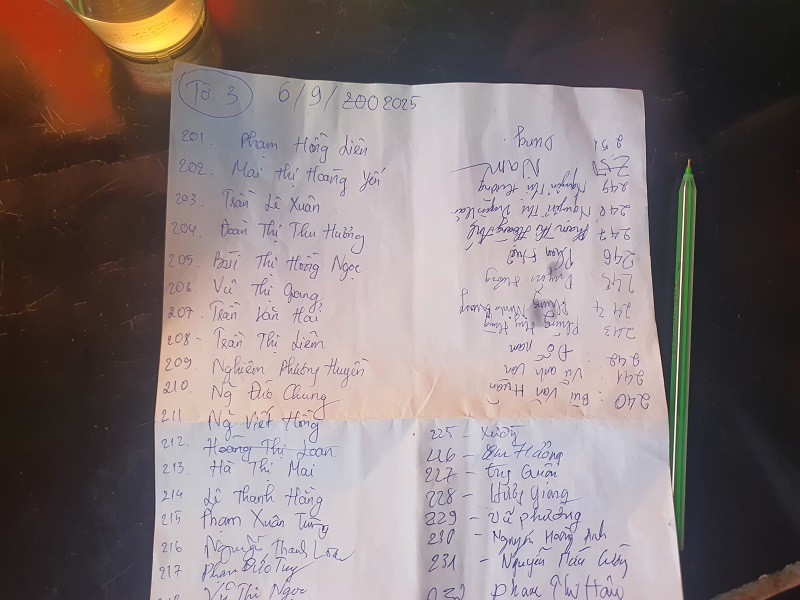 Tờ 3 6/9/ 2025
201. Phạm Hồng Liên
202. Mai Thị Hoàng Yến
203. Trần Lê Xuân
204. Đoàn Thị Thu Hương
205. Bùi Thị Hồng Ngọc
206 Vũ Thị Giang
207. Trần Văn Hải
208 - Trần Thị Liêm
209. Nghiêm Phương Huyền
210. Ng Đức Chung
211 Ng Viết Hồng
212. Hoàng Thị Loan
213. Hà Thị Mai
214 Lê Thanh Hằng
215 Phạm Xuân Tùng
216 Nguyễn Thanh Loan
217 Phan Đức Tuy
Vũ Thị Ngọc
225 -
226 -
227 -
228 - Hương Giang
229 - Vũ Phương
230 - Nguyễn Hoàng Anh
231 - Nguyễn
Phạm Như
240 : Bùi Văn Huân
241 Vũ Anh Văn
242 . Đỗ Nam
243 Phùng Thị Hùng
244
245
246
247 Phạm Thị Hoàng
248 Nguyễn Thị
249 Nguyễn Thị Hương
Nam
251 Dung